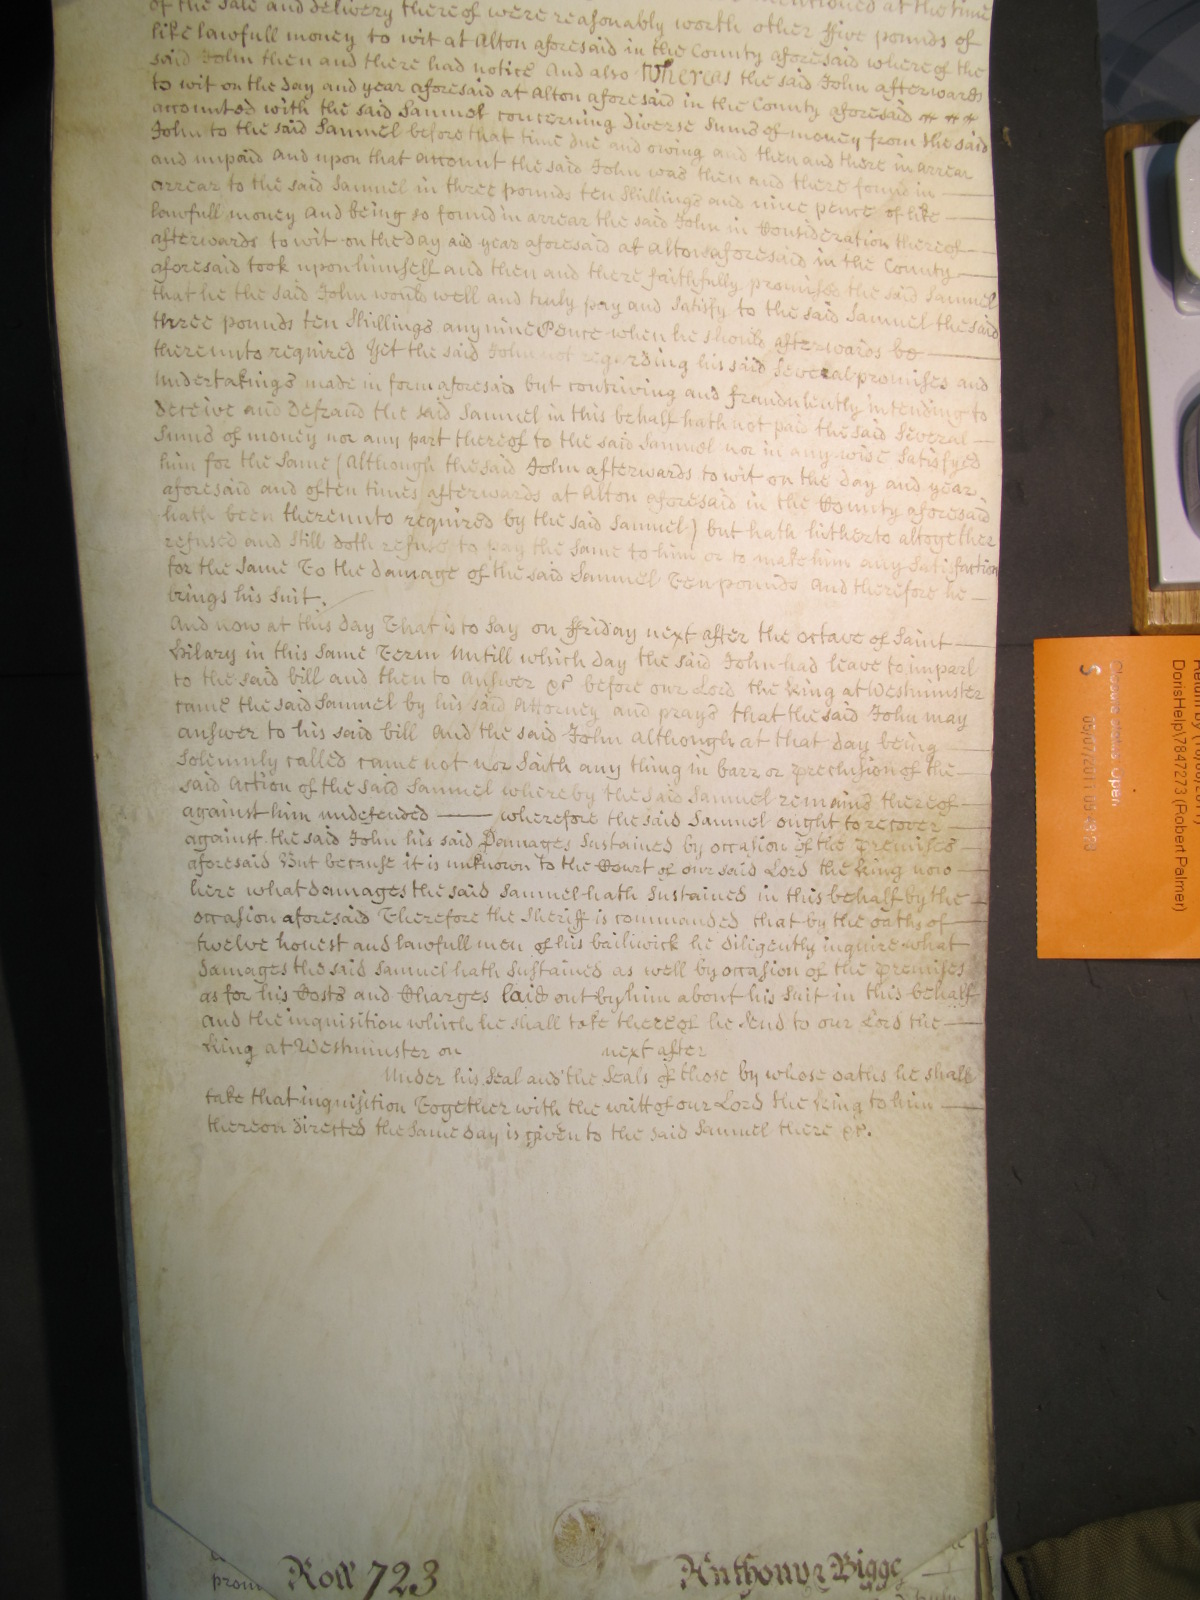 mentioned at the time
of the Sale and delivery thereof were reasonably worth other ffive pounds of
like lawfull money to wit at Alton aforesaid in the County aforesaid whereof the
said John then and there had notice And also Whereas the said John afterwards
to wit on the day and year aforesaid at Alton aforesaid in the County aforesaid
accounted with the said Samuel concerning Diverse Sums of money from the said
John to the said Samuel before that time due and owing and then and there in arrear
and unpaid And upon that Account the said John was then and there found in
arrear to the said Samuel in three pounds ten Shillings and nine pence of like
lawfull money And being so found in arrear the said John in Consideration thereof
afterwards to wit on the day aid year aforesaid at Alton aforesaid in the County
aforesaid took upon himself and then and there faithfully promised the said Samuel
that he the said John would well and truly pay and Satisfy to the said Samuel the said
three pounds ten Shillings any nine Pence when he should afterwards be
thereunto required Yet the said John not regarding his said Several promises and
Undertakings made in form aforesaid but contriving and fraudulently intending to
deceive and defraud the said Samuel in this behalf hath not paid the said Several
Sums of money nor any part thereof to the said Samuel nor in any wise Satisfyed
him for the Same (Although the said John afterwards to wit on the day and year
aforesaid and often times afterwards at Alton aforesaid in the County aforesaid
hath been thereunto required by the said Samuel) but hath hitherto altogether
refused and Still doth refuse to pay the Same to him or to make him any Satisfaction
for the Same To the damage of the said Samuel Ten pounds And therefore he
brings his Suit.
And now at this day That is to Say on ffriday next after the octave of Saint
Hilary in this Same Term Untill which day the said John had leave to imparl
to the said bill and then to Answer &c before our Lord the King at Westminster
came the said Samuel by his said Attorney and prays that the said John may
answer to his said bill And the said John Although at that day being
Solemnly called came not nor Saith any thing in barr or preclusion of the
said Action of the said Samuel whereby the said Samuel remains thereof
against him undefended — wherefore the said Samuel ought to recover
against the said John his said Damages Sustained by occasion of the premises
aforesaid But because it is unknown to the Court of our said Lord the King now
here what damages the said Samuel hath Sustained in this behalf by the
occasion aforesaid Therefore the Sheriff is commanded that by the oaths of
twelve honest and lawfull men of his bailiwick he diligently inquire what
damages the said Samuel hath Sustained as well by occasion of the premises
as for his Costs and Charges laid out by him about his Suit in this behalf
and the inquisition which he shall take thereof he Send to our Lord the
King at Westminster on next after
Under his Seal and the Seals of those by whose oaths he shall
take that inquisition Together with the writt of our Lord the King to him
thereon directed the Same day is given to the said Samuel there &c.
prom Roll 723 Anthony Bigge
DorisHelp\7847273 (Robert Palmer)
Closure status: Open
S